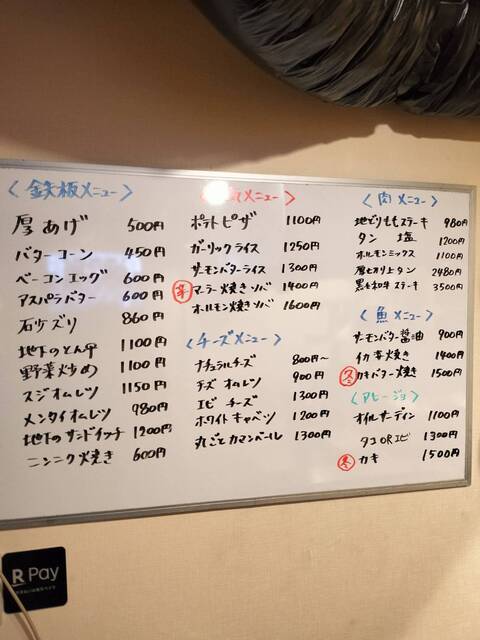 <鉄板メニュー>
厚あげ 500円
バターコーン 450円
ベーコンエッグ 600円
アスパラバター 600円
石ヅズリ 860円
地下のとん平 1100円
野菜炒め 1100円
スジオムレツ 1150円
メンタイオムレツ 980円
地下のサンドイッチ 1200円
ニンニク焼き 600円
メニュー>
ポテトピザ 1100円
ガーリックライス 1250円
サーモンバターライス 1300円
辛 マーラー焼きソバ 1400円
ホルモン焼きソバ 1600円
<チーズメニュー>
ナチュラルチーズ 800円~
チーズオムレツ 900円
エビチーズ 1300円
ホワイトキャベツ 1200円
丸ごとカマンベール 1300円
<肉メニュー>
地どりももステーキ 980円
タン塩 1200円
ホルモンミックス 1100円
厚切り上タン 2480円
黒毛和牛ステーキ 3500円
<魚メニュー>
サーモンバター醤油 900円
イカ 焼き 1400円
冬 カキバター焼き 1500円
<アヒージョ>
オイルサーディン 1100円
タコORエビ 1300円
冬 カキ 1500円
R Pay